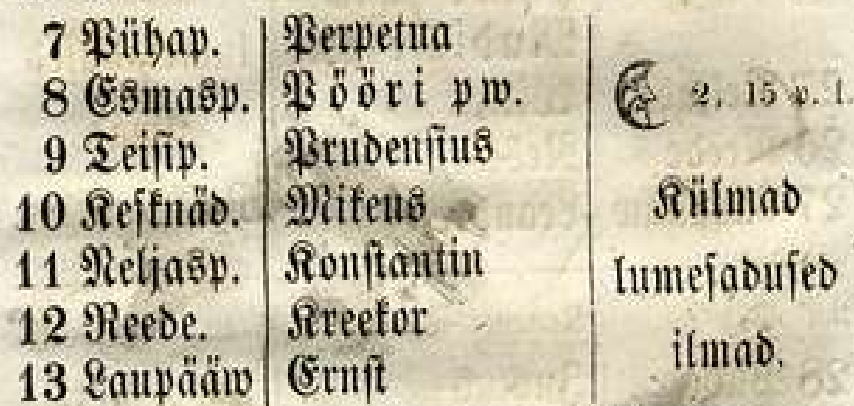 7 Pühap. Perpetua
8 Esmasp. Pööri pw. 2, 15 p. l.
9 Teisip. Prudensius
10 Kesknäd. Mikeus Külmad
11 Neljasp. Konstantin lumesadused
12 Reede. Kreekor ilmad.
13 Laupääw Ernst